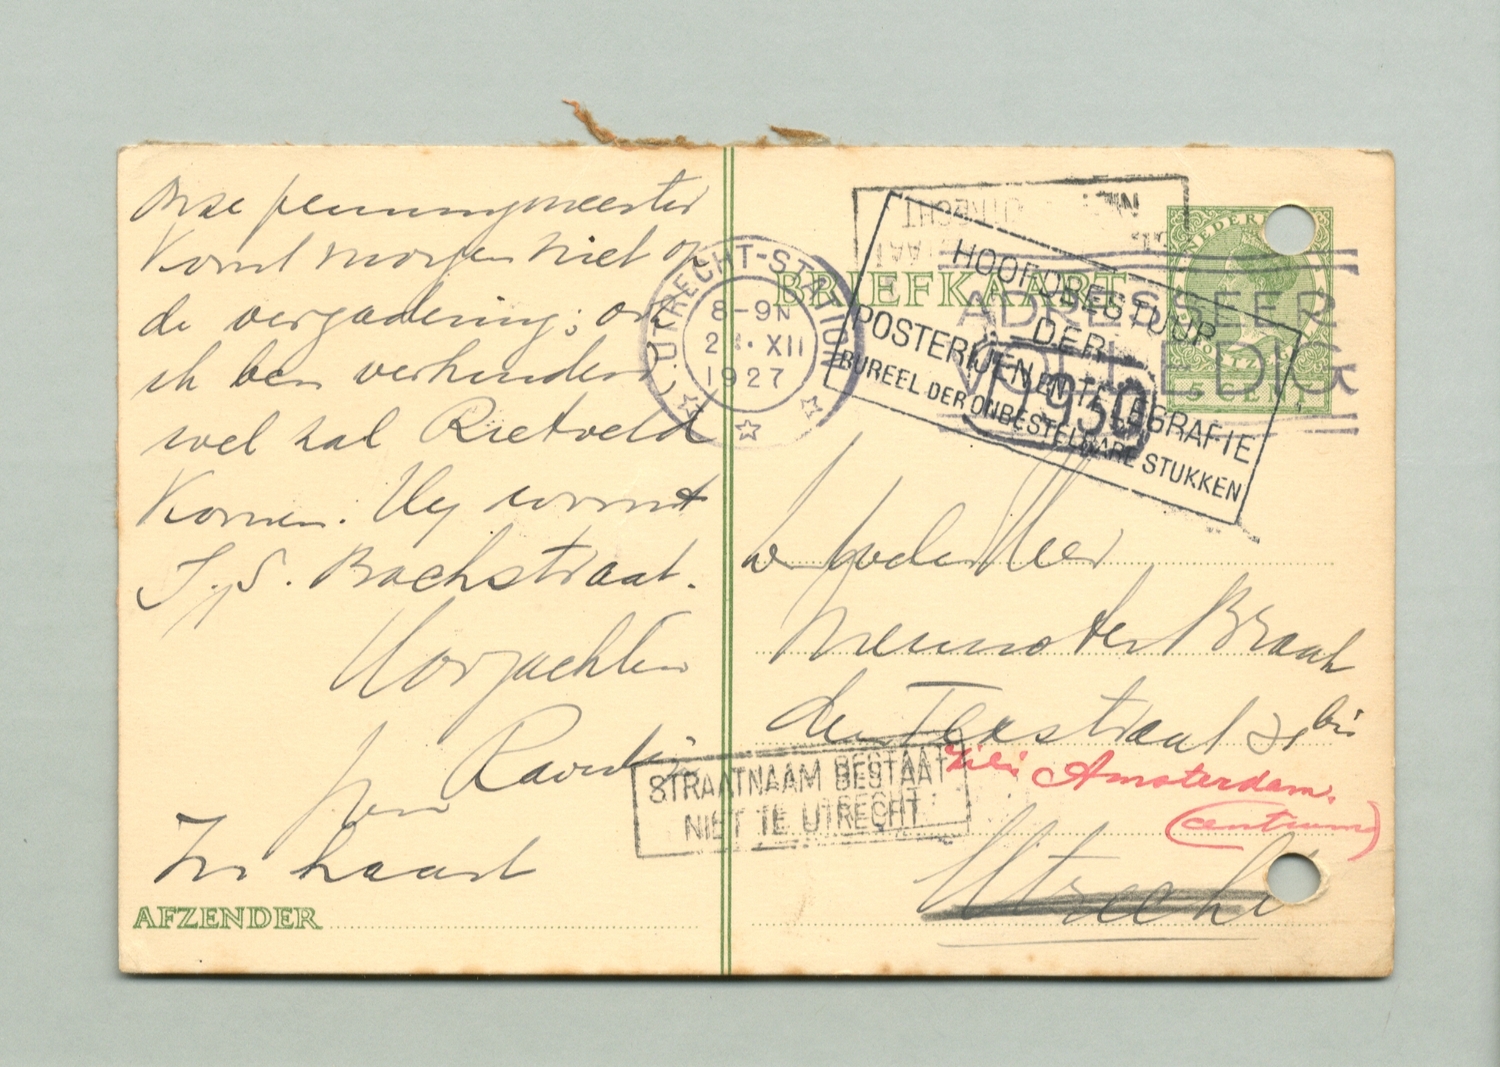 onze penningmeester
komt morgen niet op
de vergadering; ook
ik ben verhinderd
wel zal Rietveld
komen. Hij woont
J.S. Bachstraat.
Hoogachten
Ravesteijn
In haast
AFZENDER
UTRECHT-STATION
8-9N
2 . XII
1927
BRIEFKAART
NEDERL
5 CENT
ADRESSEER
VOLLEDIG
HOOFDBESTUUR
DER
POSTERIJEN EN TELEGRAFIE
BUREEL DER ONBESTELBARE STUKKEN
1930
UTRECHT
Menno ter Braak
den Texstraat bis
Amsterdam.
(centrum)
STRAATNAAM BESTAAT
NIET TE UTRECHT
Utrecht